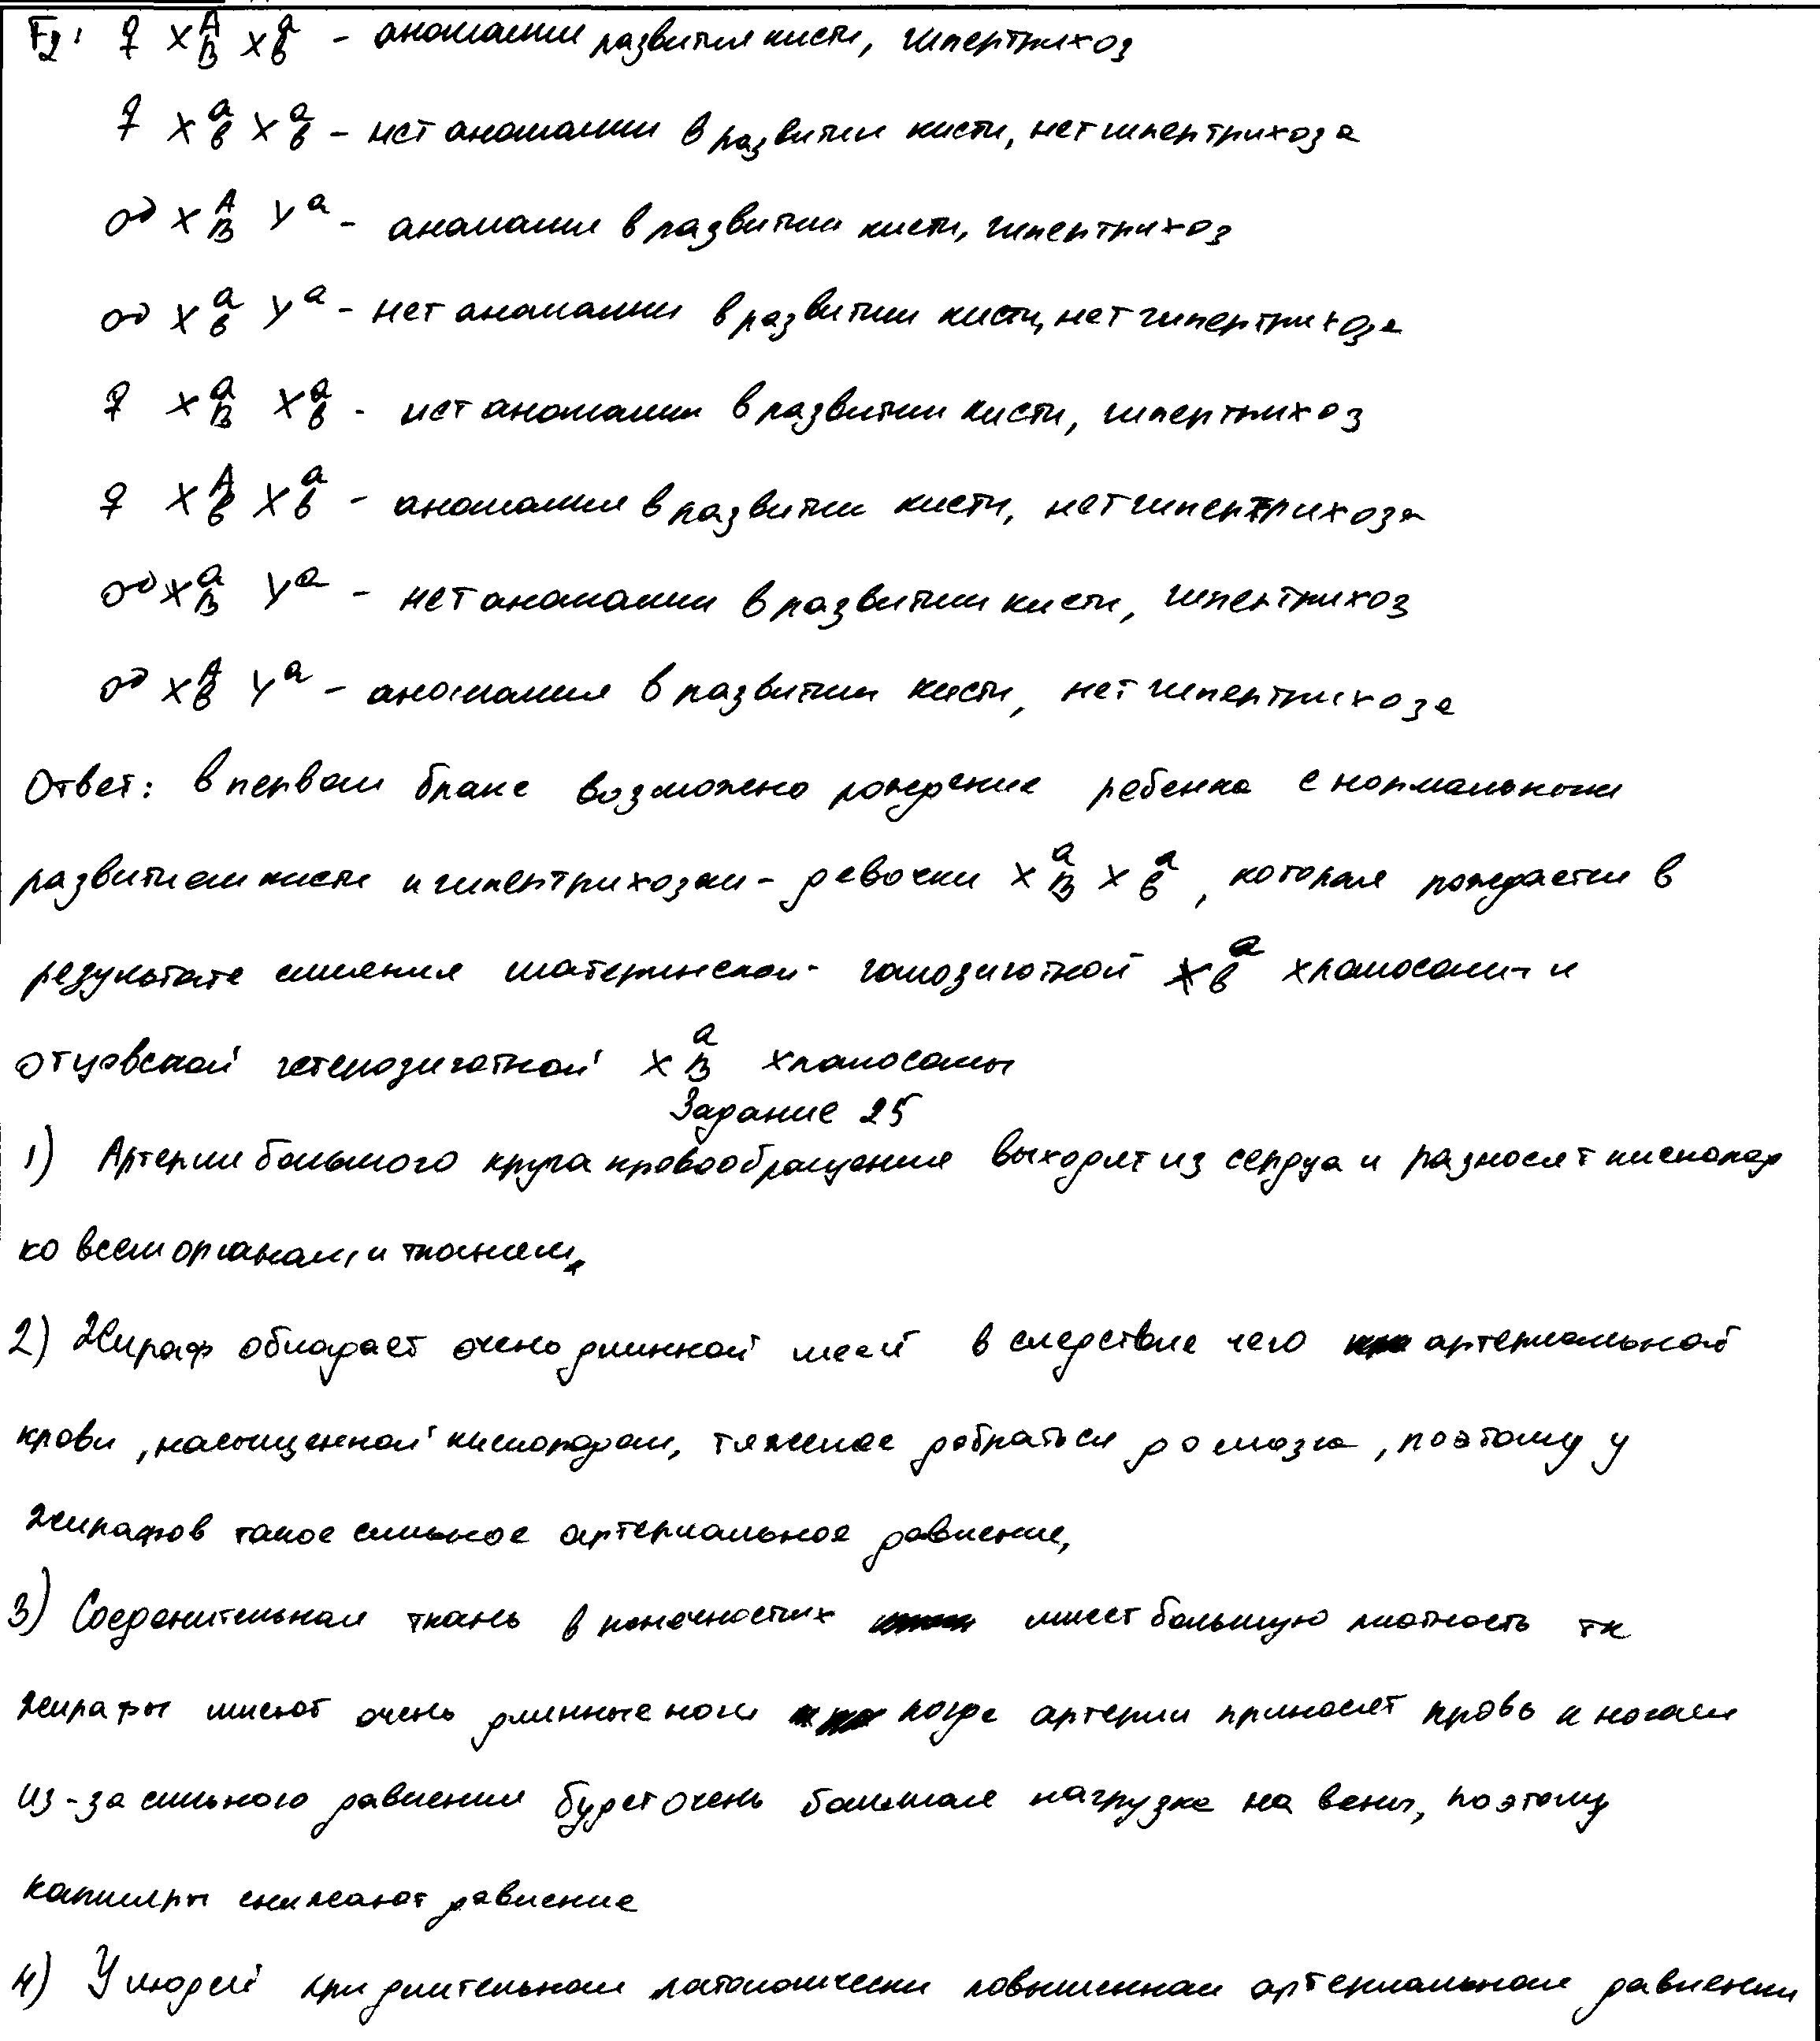 F2: ♀ X^A_B X^a_b - аномалии развития кисти, гипертрихоз
♀ X^a_b X^a_b - нет аномалии в развитии кисти, нет гипертрихоза
♂ X^A_B Y^a - аномалии в развитии кисти, гипертрихоз
♂ X^a_b Y^a - нет аномалии в развитии кисти, нет гипертрихоза
♀ X^a_B X^a_b - нет аномалии в развитии кисти, гипертрихоз
♀ X^A_b X^a_b - аномалия в развитии кисти, нет гипертрихоза
♂ X^a_B Y^a - нет аномалии в развитии кисти, гипертрихоз
♂ X^A_b Y^a - аномалия в развитии кисти, нет гипертрихоза
Ответ: в первом браке возможено рождение ребенка с нормальным
развитием кисти и гипертрихозом - девочки X^a_B X^a_b, которая рождается в
результате слияния материнской гомозиготной X^a_b хромосомы и
отцовской гетерозиготной X^a_B хромосомы
Задание 25
1) Артерии большого круга кровообращения выходят из сердца и разносят кислород
ко всем органам и тканям.
2) Жираф обладает очень длинной шеей в следствие чего артериальной
крови, насыщенной кислородом, тяжелее добраться до мозга, поэтому у
жирафов такое сильное артериальное давление,
3) Соеденительная ткань в конечностях имеет большую плотность тк
жирафы имеют очень длинные ноги когда артерии приносят кровь к ногам
из-за сильного давления будет очень большая нагрузка на вены, поэтому
капиляры снижают давление
4) У людей при длительном патологически повышенном артериальном давлении